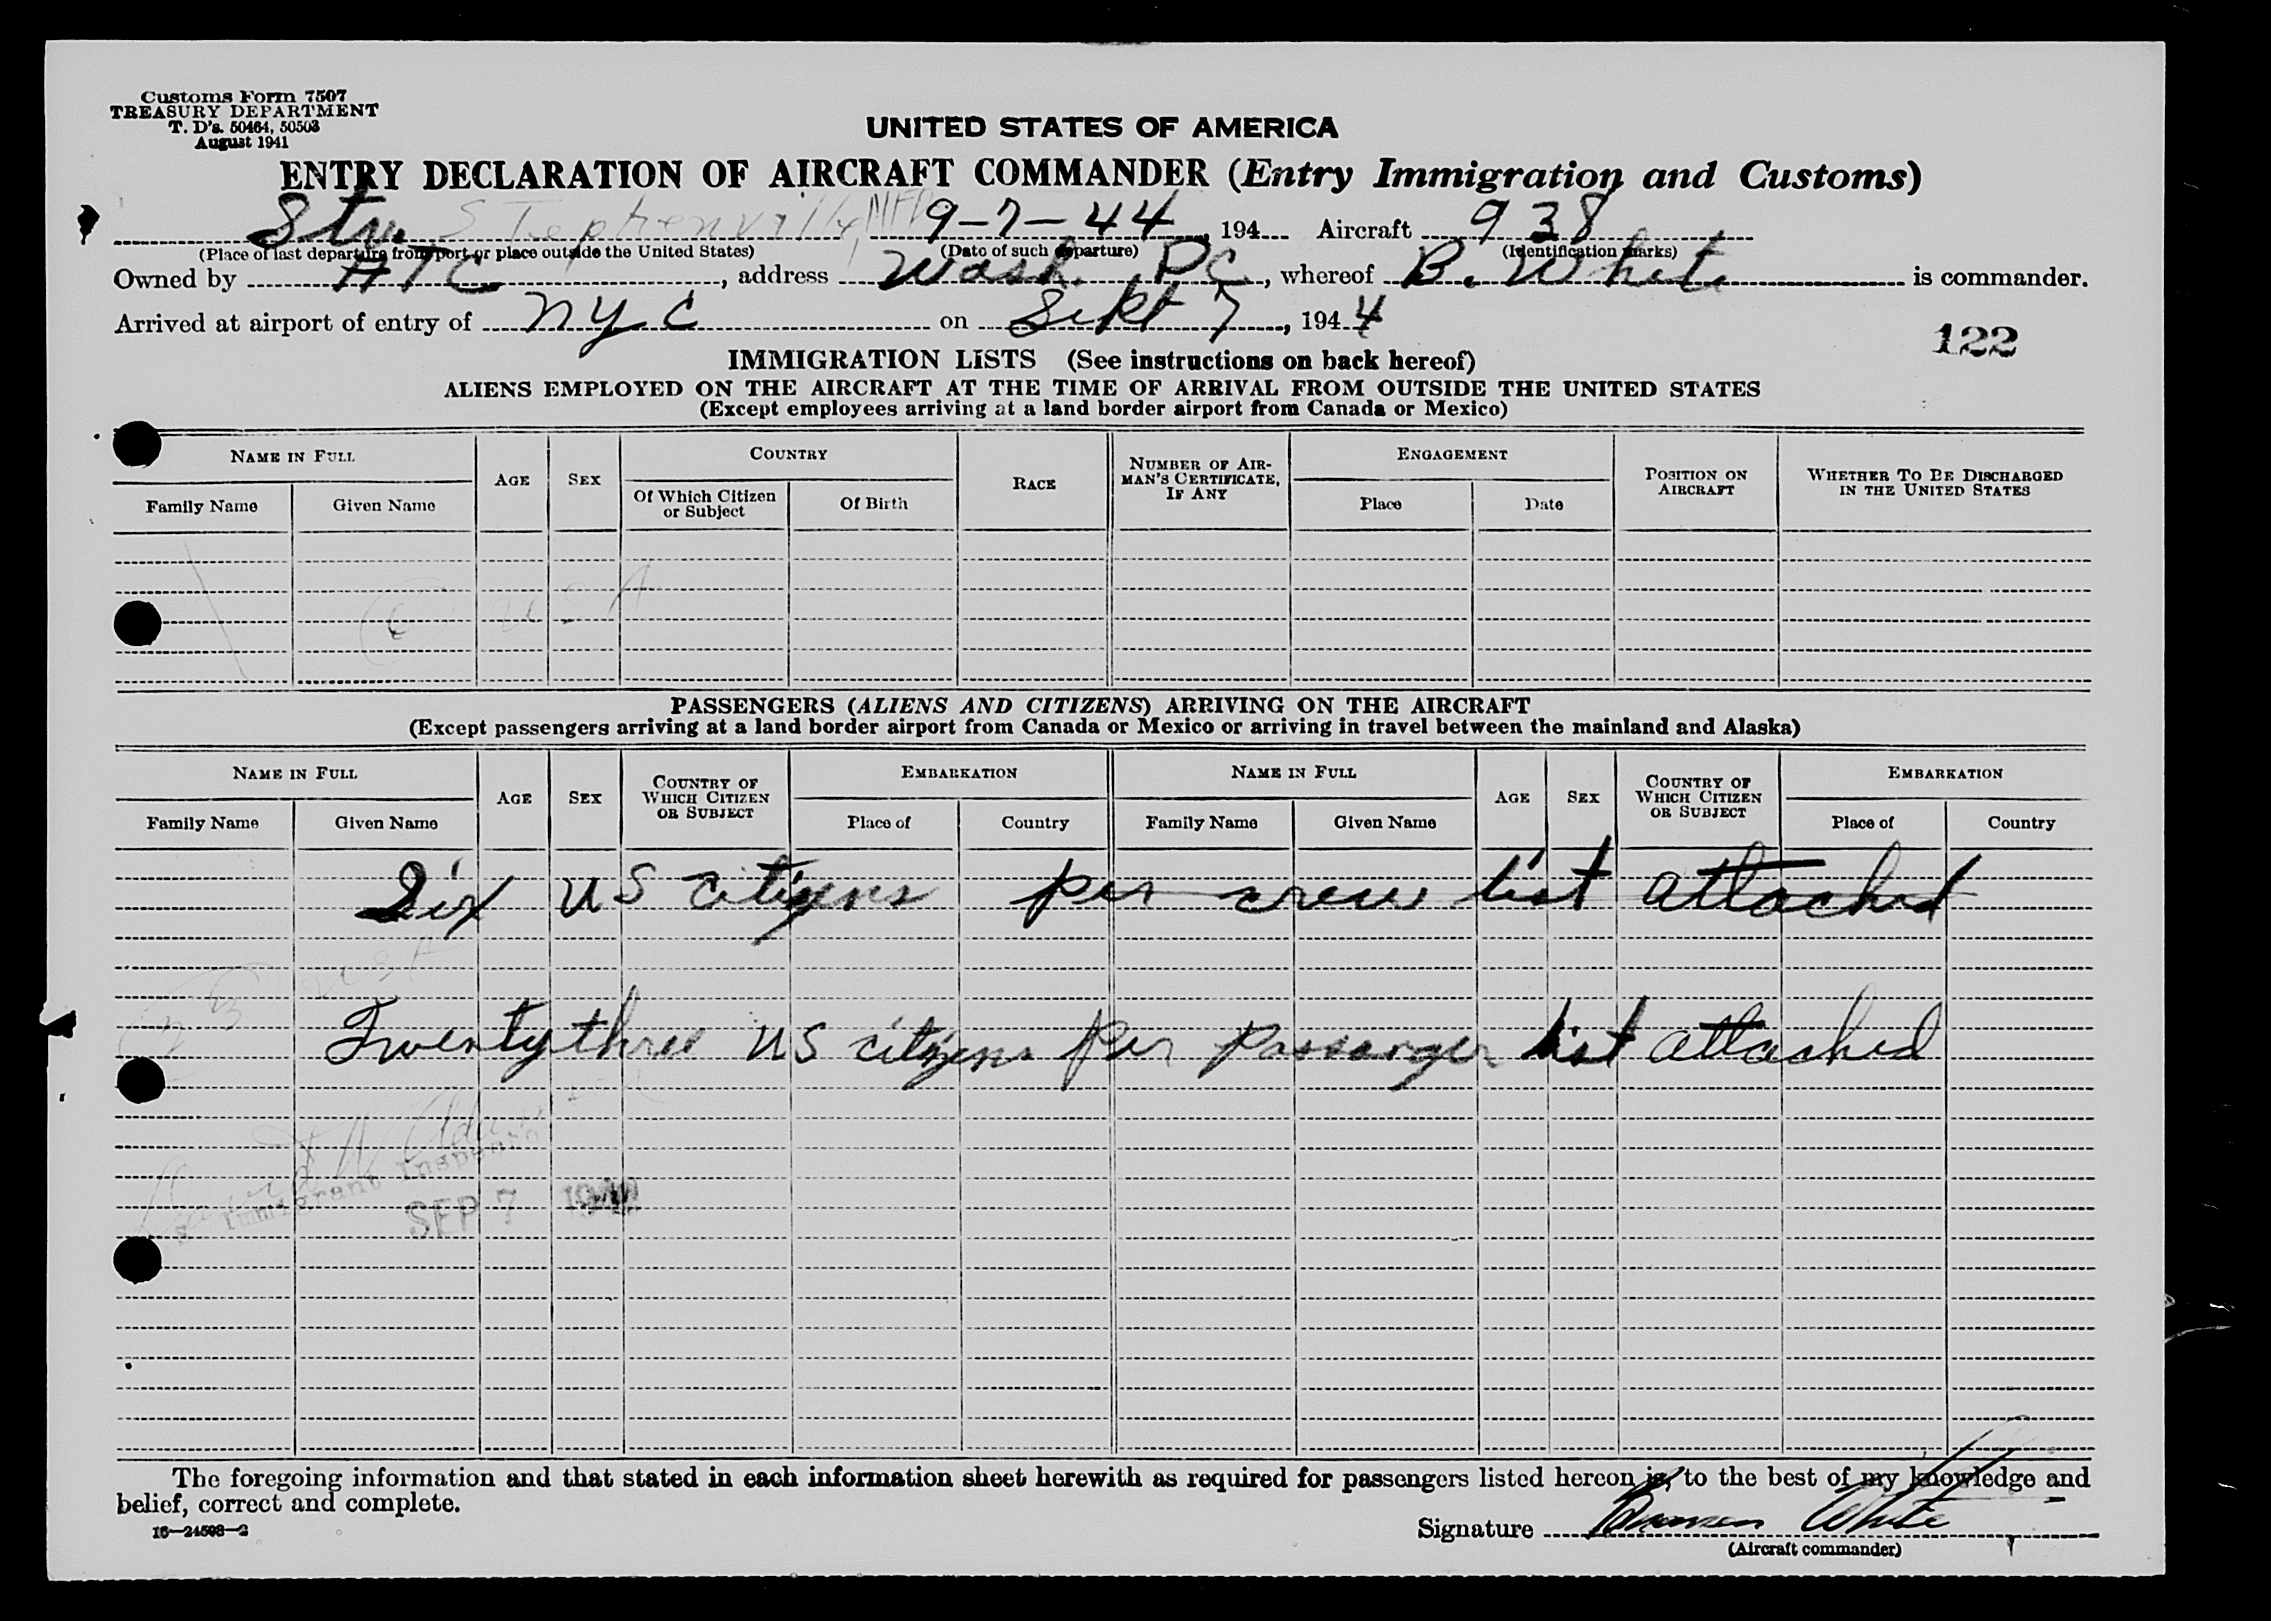 Customs Form 7507
TREASURY DEPARTMENT
T. D's. 50464, 50503
August 1941
UNITED STATES OF AMERICA
ENTRY DECLARATION OF AIRCRAFT COMMANDER (Entry Immigration and Customs)
Stv. Stephenville, NFD 9-7-44, 194 Aircraft 938
(Place of last departure from port or place outside the United States) (Date of such departure) (Identification marks)
Owned by ATC, address Wash. DC, whereof B. White is commander.
Arrived at airport of entry of NYC on Sept 7, 1944
122
IMMIGRATION LISTS (See instructions on back hereof)
ALIENS EMPLOYED ON THE AIRCRAFT AT THE TIME OF ARRIVAL FROM OUTSIDE THE UNITED STATES
(Except employees arriving at a land border airport from Canada or Mexico)
NAME IN FULL AGE SEX COUNTRY RACE NUMBER OF AIRMAN'S CERTIFICATE, IF ANY ENGAGEMENT POSITION ON AIRCRAFT WHETHER TO BE DISCHARGED IN THE UNITED STATES
Family Name Given Name Of Which Citizen or Subject Of Birth Place Date
6 USA
PASSENGERS (ALIENS AND CITIZENS) ARRIVING ON THE AIRCRAFT
(Except passengers arriving at a land border airport from Canada or Mexico or arriving in travel between the mainland and Alaska)
NAME IN FULL AGE SEX COUNTRY OF WHICH CITIZEN OR SUBJECT EMBARKATION NAME IN FULL AGE SEX COUNTRY OF WHICH CITIZEN OR SUBJECT EMBARKATION
Family Name Given Name Place of Country Family Name Given Name Place of Country
Six US citizens per crew list attached
23 USA
Twenty three US citizens per passenger list attached
Immigrant Inspector
SEP 7
The foregoing information and that stated in each information sheet herewith as required for passengers listed hereon is, to the best of my knowledge and
belief, correct and complete.
16—24508-2
Signature White
(Aircraft commander)